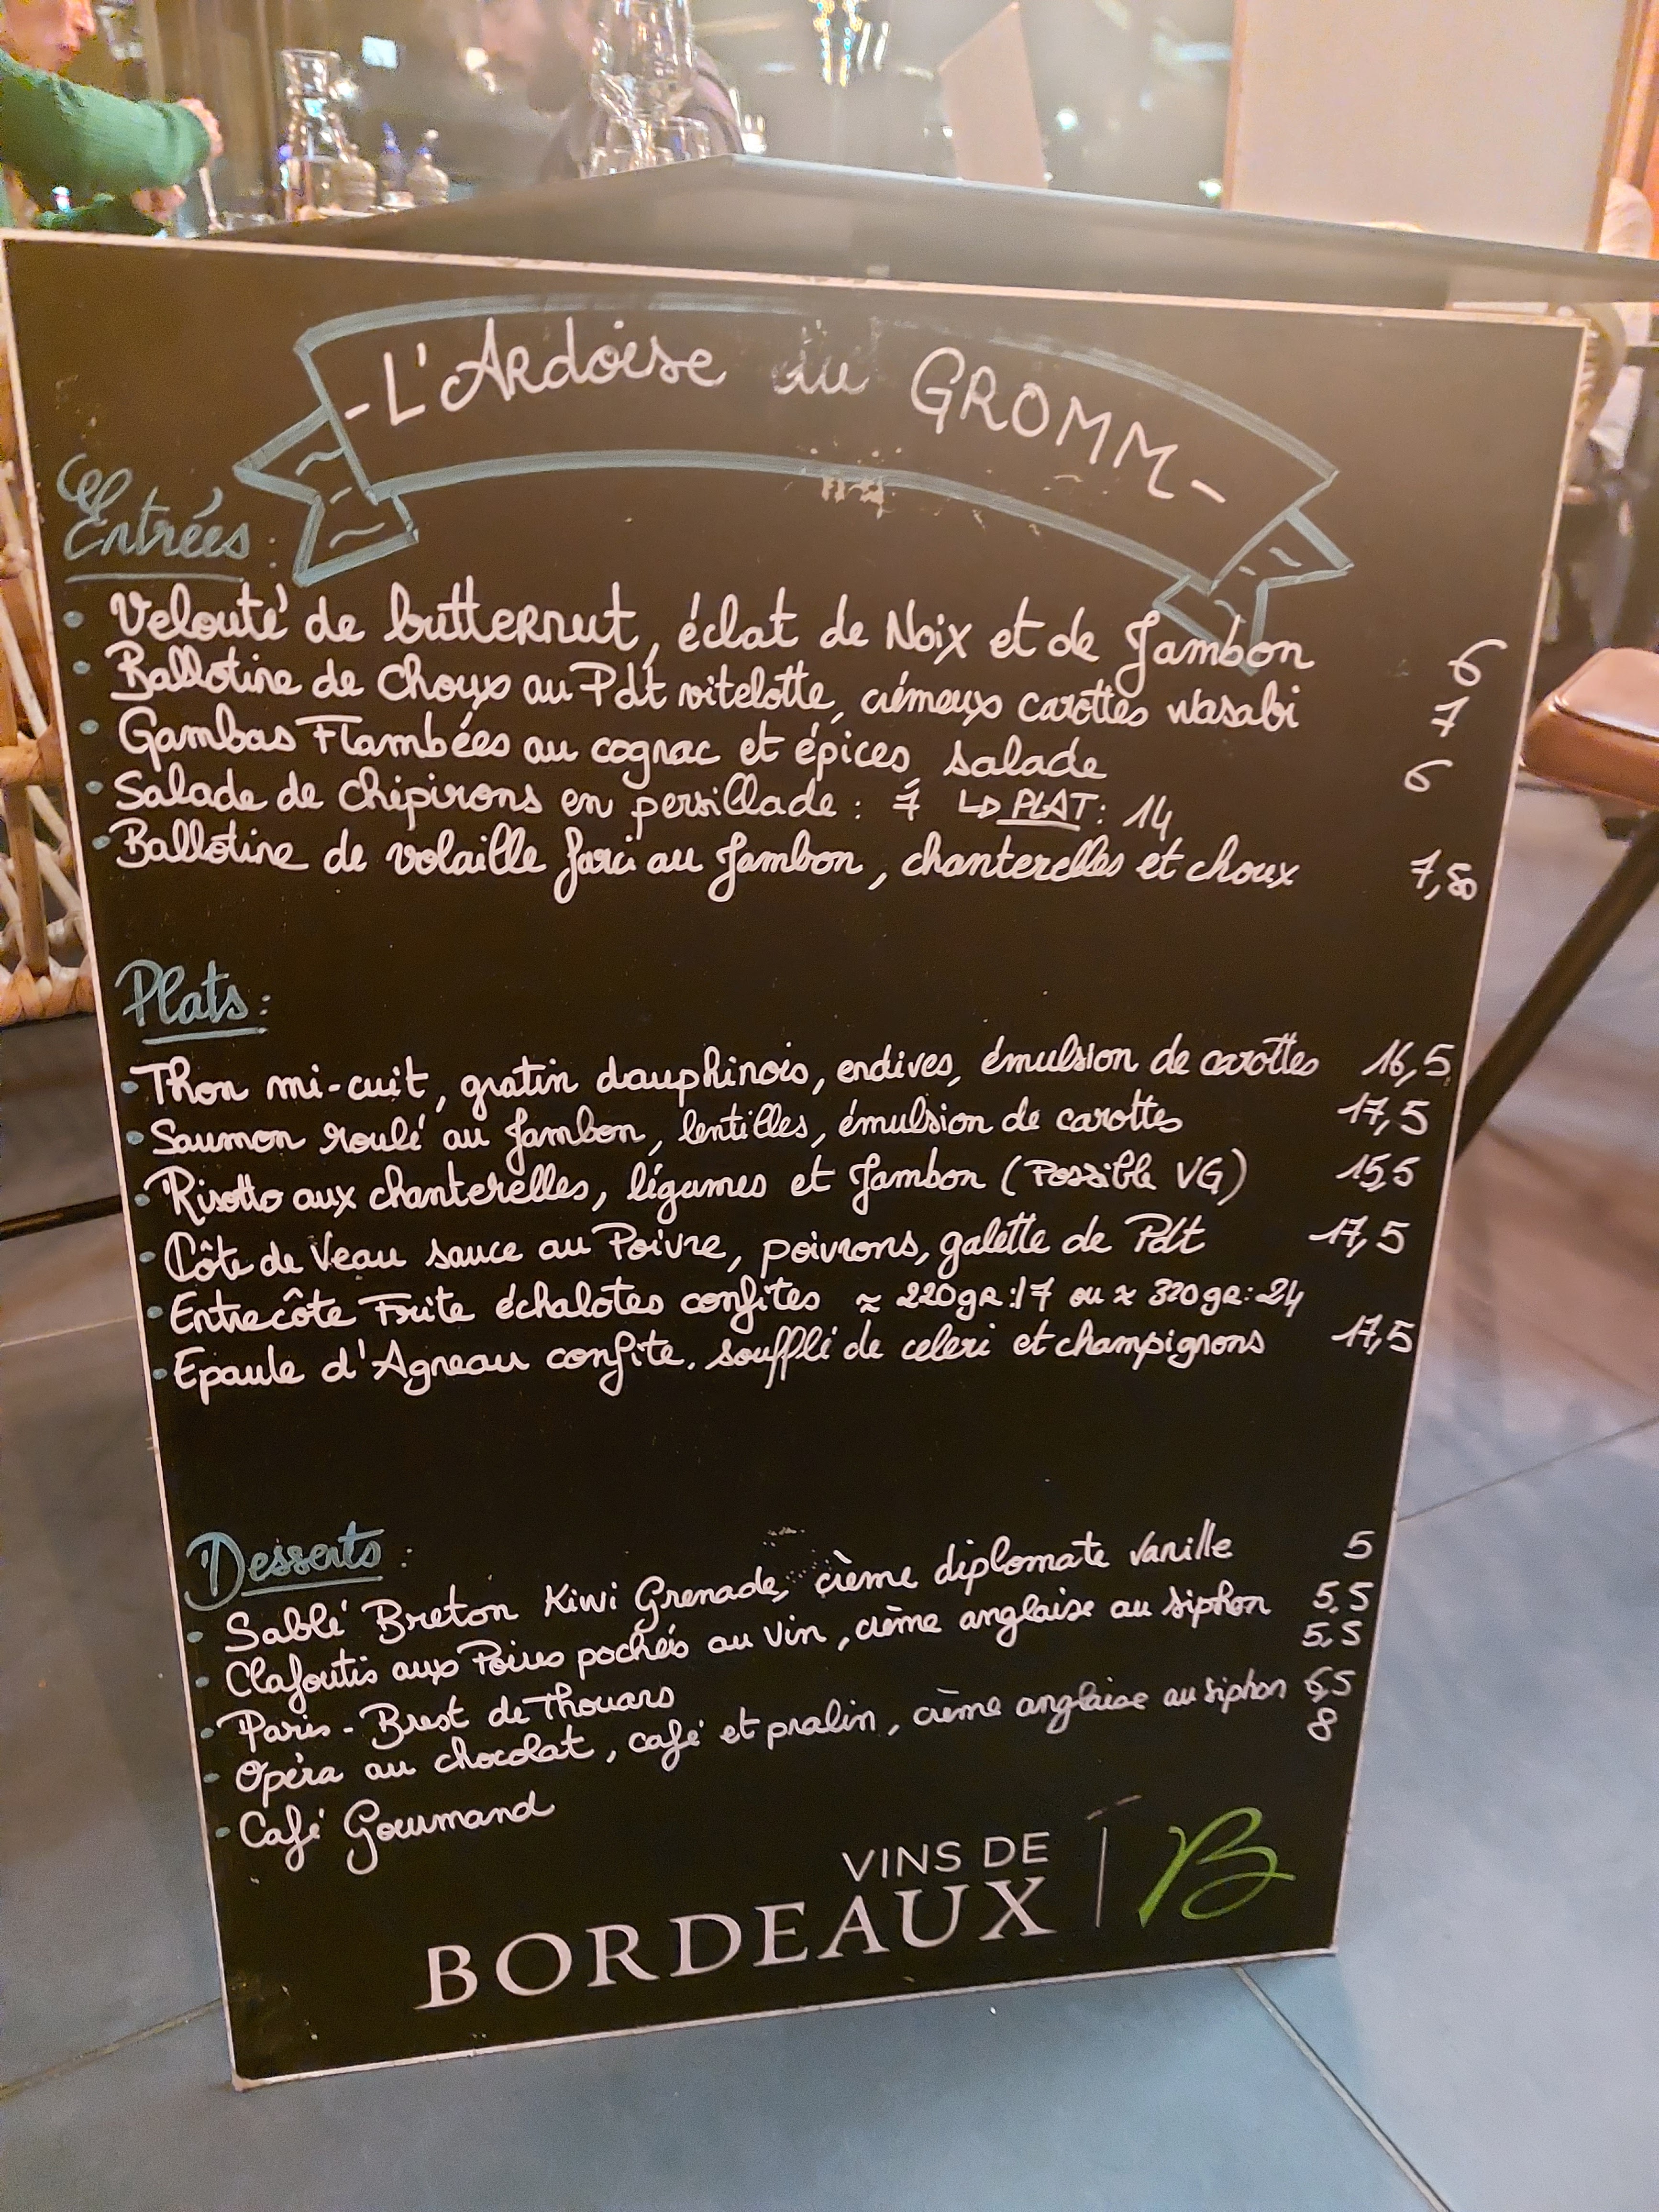 - L'Ardoise du GROMM -
Entrées :
• Velouté de butternut, éclat de Noix et de Jambon 6
• Ballotine de choux au Pdt vitelotte, crémeux carottes wasabi 7
• Gambas Flambées au cognac et épices, salade 6
• Salade de chipirons en persillade : 7 ↳ PLAT : 14
• Ballotine de volaille farci au Jambon, chanterelles et choux 7,50
Plats :
• Thon mi-cuit, gratin dauphinois, endives, émulsion de carottes 16,5
• Saumon roulé au Jambon, lentilles, émulsion de carottes 17,5
• Risotto aux chanterelles, légumes et Jambon (Possible VG) 15,5
• Côte de Veau sauce au Poivre, poivrons, galette de Pdt 17,5
• Entrecôte Frite échalotes confites ≈ 220gr : 17 ou ≈ 320gr : 24
• Epaule d'Agneau confite. soufflé de celeri et champignons 17,5
Desserts :
• Sablé Breton Kiwi Grenade, crème diplomate vanille 5
• Clafoutis aux Poires pochés au vin, crème anglaise au siphon 5,5
• Paris-Brest de Thouars 5,5
• Opéra au chocolat, café et pralin, crème anglaise au siphon 6,5
• Café Gourmand 8
VINS DE
BORDEAUX | B